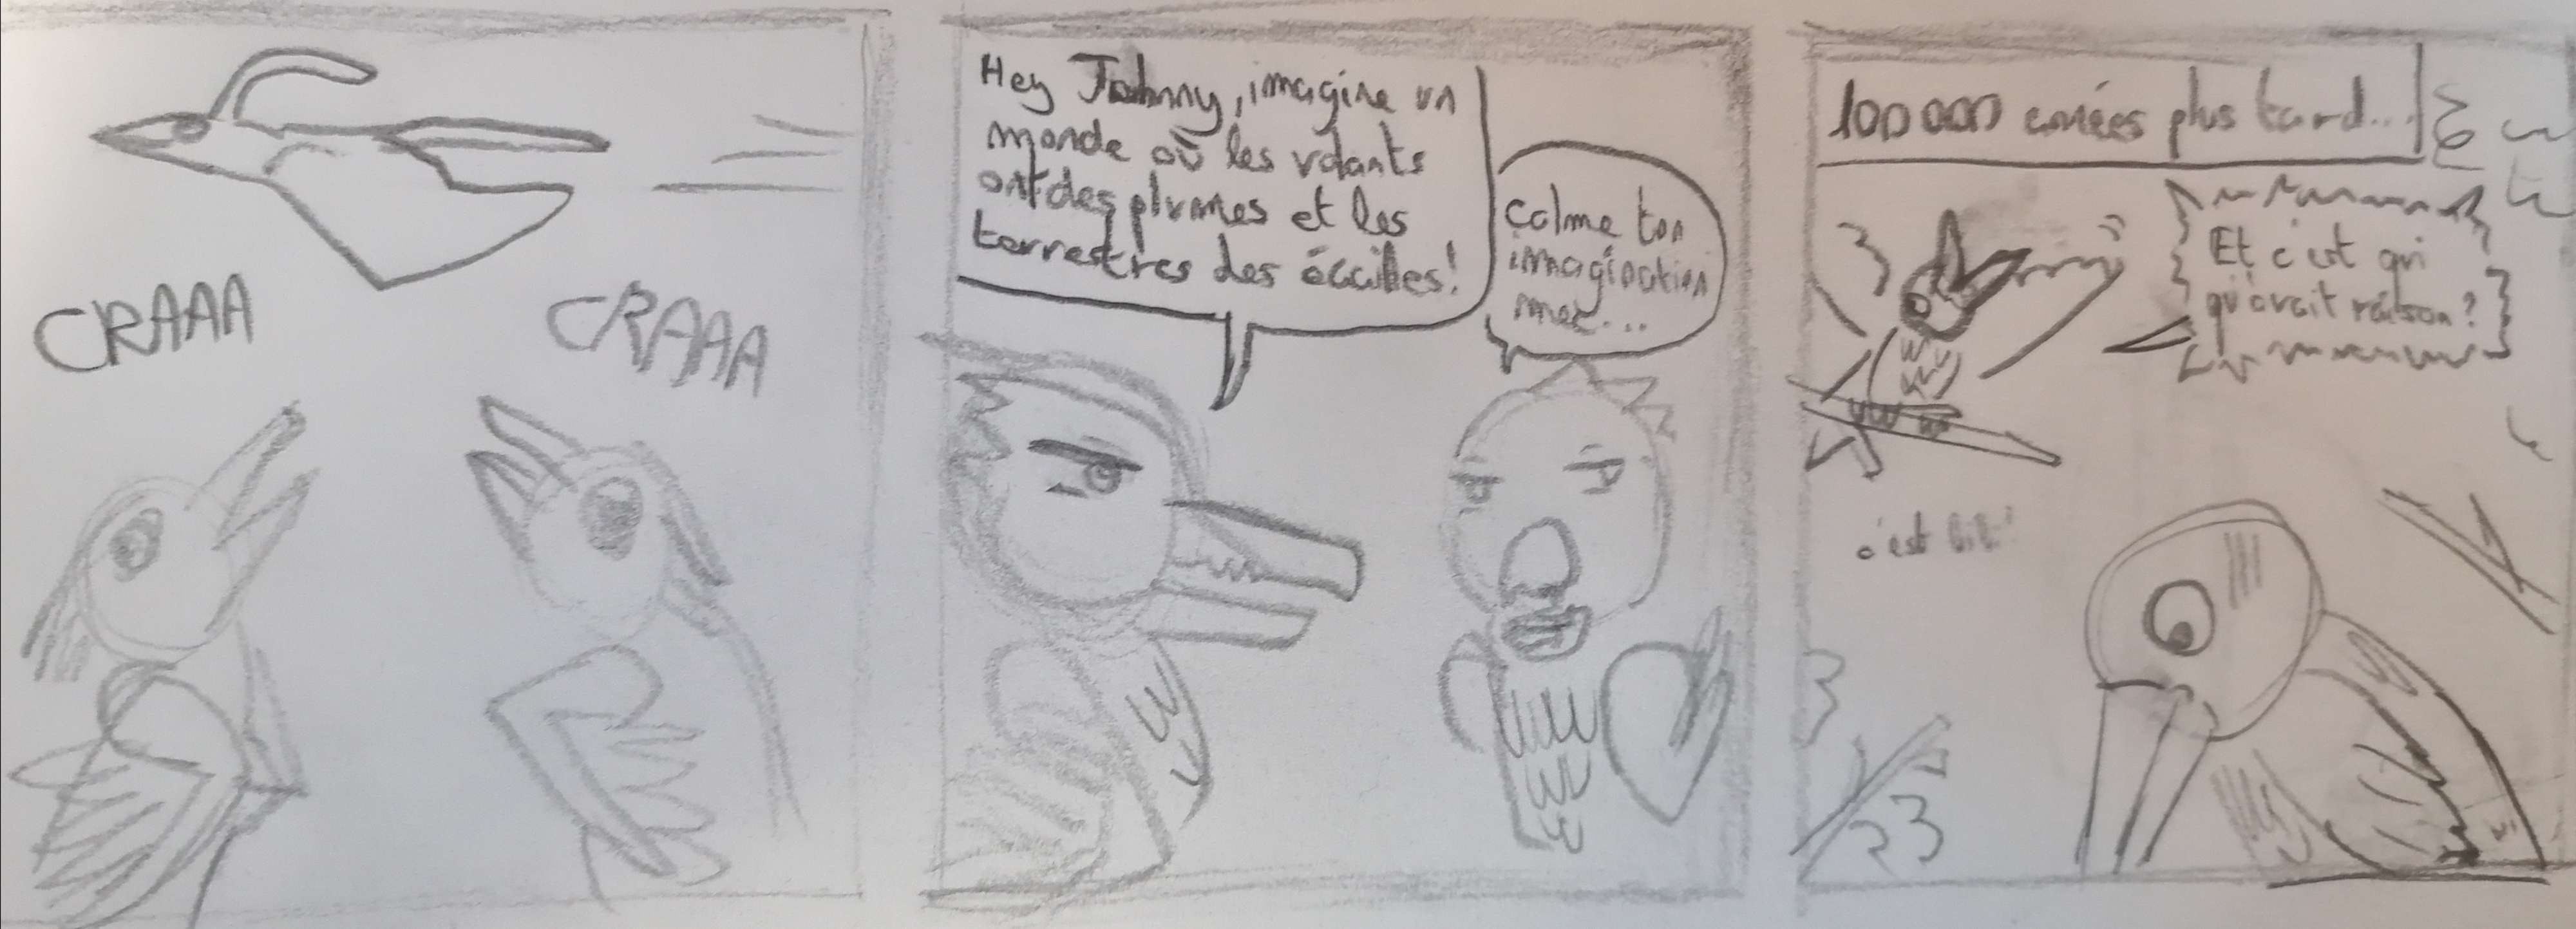 CRAAA
CRAAA
Hey Johnny, imagine un
monde où les volants
ont des plumes et les
terrestres des écailles!
Calme ton
imagination
mec...
100 000 années plus tard...
Et c'est qui
qu'avait raison?
c'est